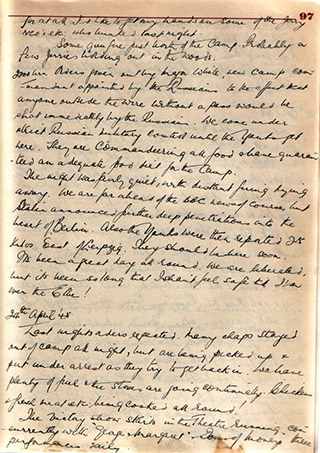 97
for a talk. I'd like to get my hands on some of the Jerry
who hunted last night
Some gun fire just north of the Camp. Probably a
few Jerries holding out in the woods.
2000 hrs Orders given out by Major White new camp com-
mandant appointed by the Russians to the effect that
anyone outside the wire without a pass would be
shot immediately by the Russians. We come under
strict Russian military control until the Yanks get
here. They are Commandeering all food & have guaran-
teed an adequate food diet for the Camp.
The night was fairly quiet, with distant firing dying
away. We are far ahead of the BBC news of course, but
Stalin announced further deep penetrations into the
heart of Berlin. Also the Yanks were then reported 25
kilos East of Leipzig. They should be here soon.
It's been a great day all round. We are liberated,
but it's been so long that I shan't feel safe till I'm
over the Elbe!
24th April 45
Last night's orders repeated. Many chaps stayed
out of camp all night, but are being picked up &
put under arrest as they try to get back in. We have
plenty of fuel & the stoves are going continually. Chicken
& fresh meat etc being cooked all round!
The Victory show starts in the theatre running con-
currently with "George & Margaret" of money three
performances daily.